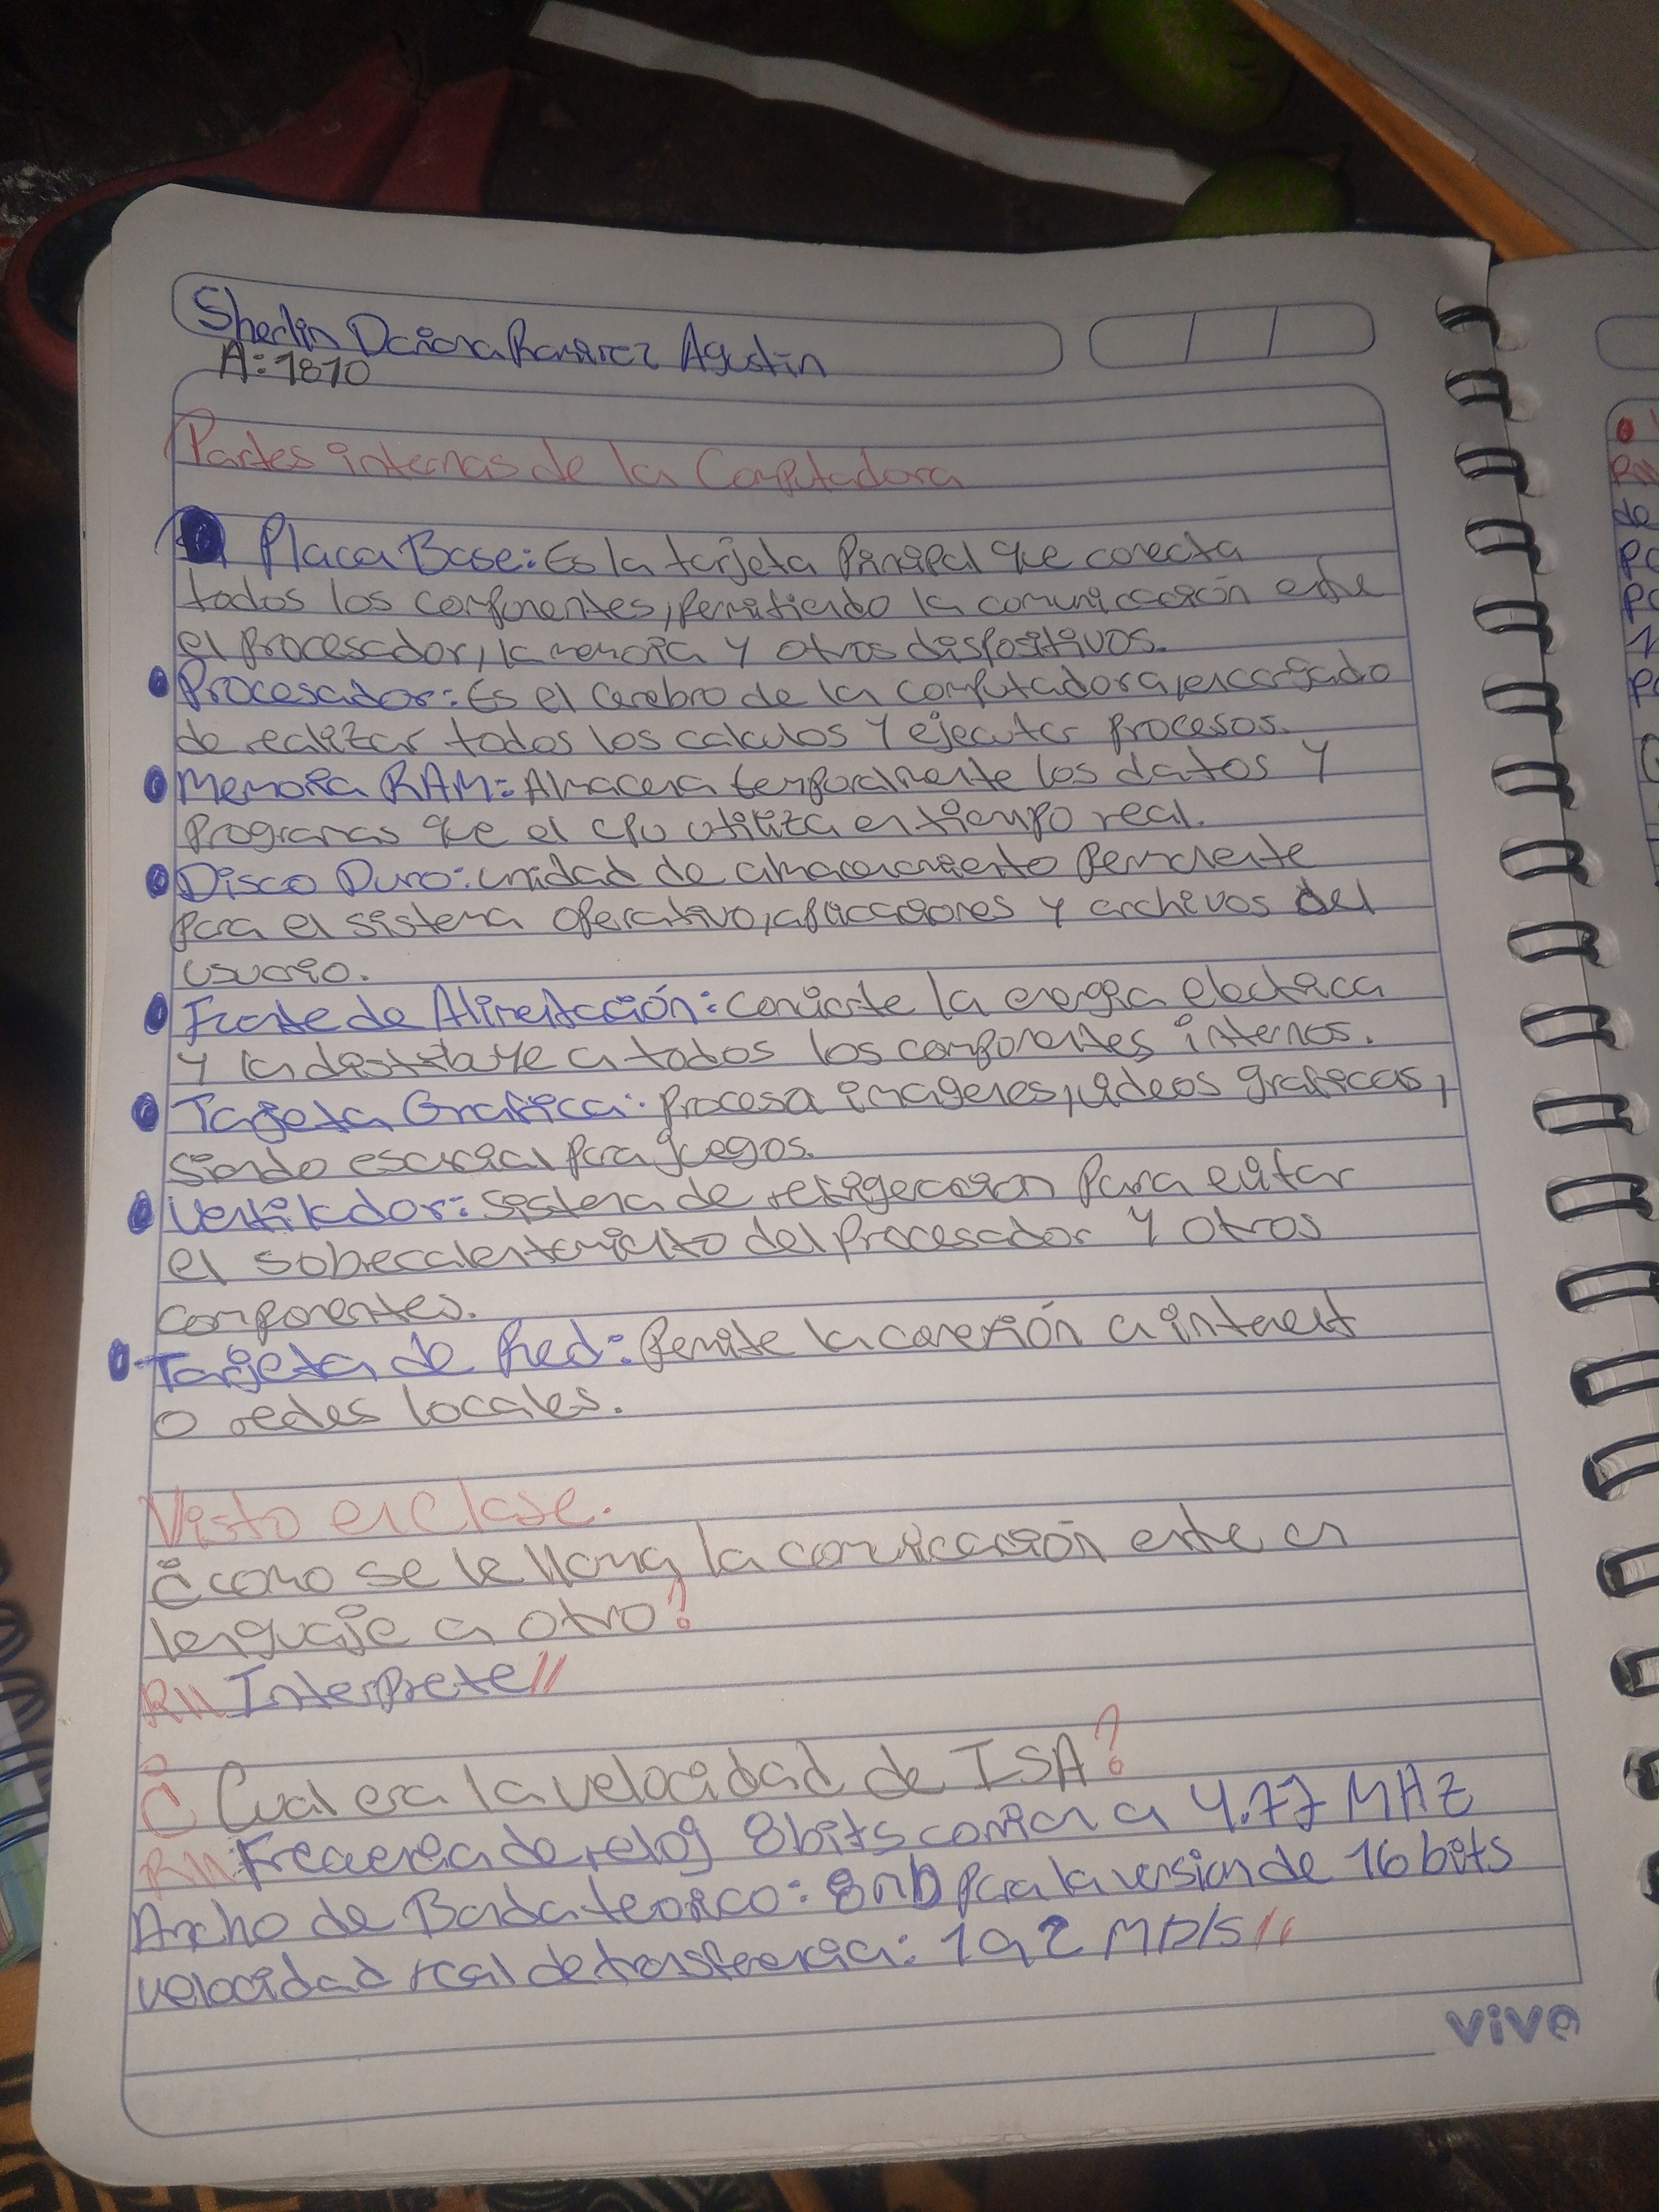 Sherlin Daiana Ramirez Agustin
A:1810
Partes internas de la Computadora
Placa Base: Es la tarjeta Prinipal que conecta
todos los componentes, permitiendo la comunicacación entre
el procesador, la memoria y otros dispositivos.
Procesador: Es el cerebro de la computadora, encargado
de realizar todos los calculos y ejecutar procesos.
Memoria RAM: Almacena temporalmente los datos y
programas que el CPU utiliza en tiempo real.
Disco Duro: unidad de almacenamiento permanente
para el sistema operativo, aplicaciones y archivos del
usuario.
Fuente de Alimentación: convierte la energia electrica
y la distribuye a todos los componentes internos.
Tarjeta Grafica: procesa imagenes, videos graficas,
siendo esencial para juegos.
Ventilador: sistema de refrigeracion para evitar
el sobrecalentamiento del procesador y otros
componentes.
Tarjeta de Red: Permite la conexión a internet
o redes locales.
Visto en Clase.
¿como se le llama la comunicación entre un
lenguaje a otro?
R// Interprete//
¿Cual era la velocidad de ISA?
R// Frecuencia de reloj 8bits corrian a 4.77 MHz
Ancho de Banda teorico: 8mb para la version de 16 bits
velocidad real de transferencia: 1 a 2 Mb/s//
vivo
R//
de